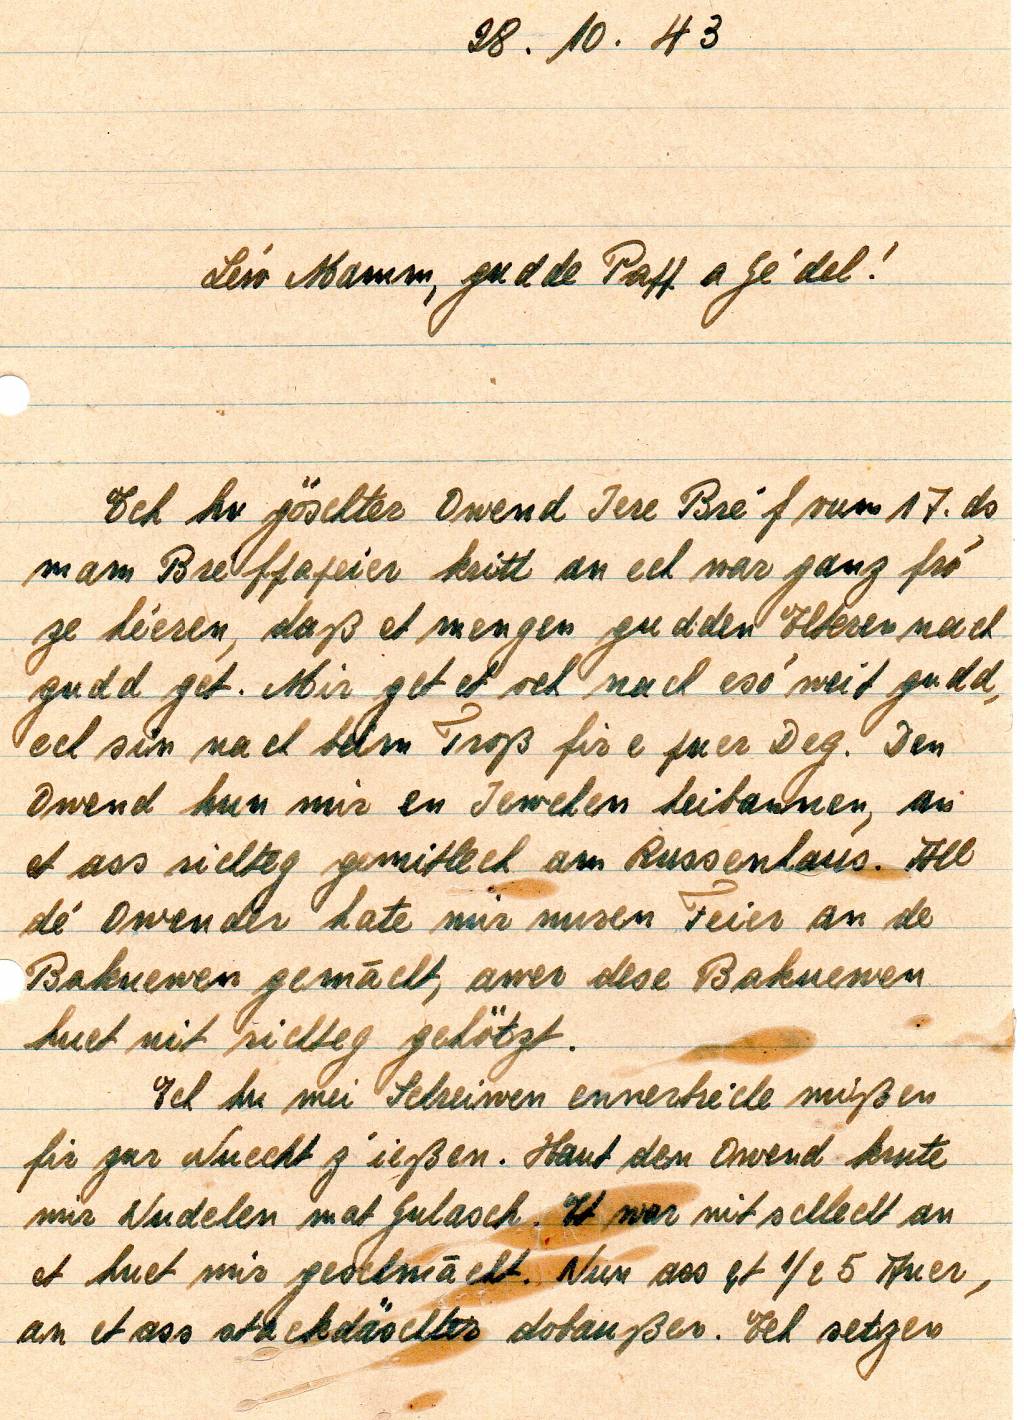 28. 10. 43
Léiw Mamm, gudde Papp a Gé'del!
Ech hu göschter Owend Iere Bré'f vum 17. ds
mam Bréffpapeier kritt an ech war ganz fró
ze héieren, daß et mengen gudden Elteren nach
gudd get. Mir get et och nach esó weit gudd,
ech sin nach beim Troß fir e puer Deg. Den
Owend hun mir en Iewelen heibannen, an
et ass richteg gemitlech am Russenhaus. All
dé Owender hate mir nuren Feier an de
Bakuewen gemācht, awer dese Bakuewen
huet nit richteg gehötzt.
Ech hu mei Schreiwen ennerbriechen mußen
fir zur Nuecht z'ießen. Haut den Owend krute
mir Nudelen mat Gulasch. Et war nit schlecht an
et huet mir geschmācht. Nun ass et 1/2 5 Auer,
an et ass stackdäschter dobaußen. Ech setzen